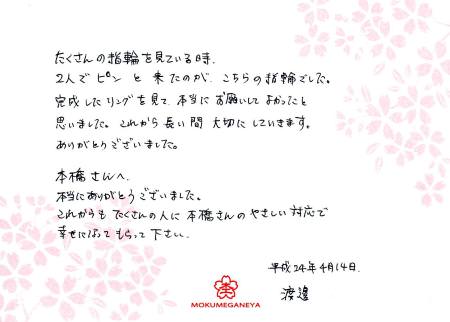 たくさんの指輪を見ている時、
2人でピンと来たのが、こちらの指輪でした。
完成したリングを見て、本当にお願いしてよかったと
思いました。これから長い間大切にしていきます。
ありがとうございました。
本橋さんへ、
本当にありがとうございました。
これからもたくさんの人に本橋さんのやさしい対応で
幸せになってもらって下さい。
平成24年4月14日.
渡邉
MOKUMEGANEYA